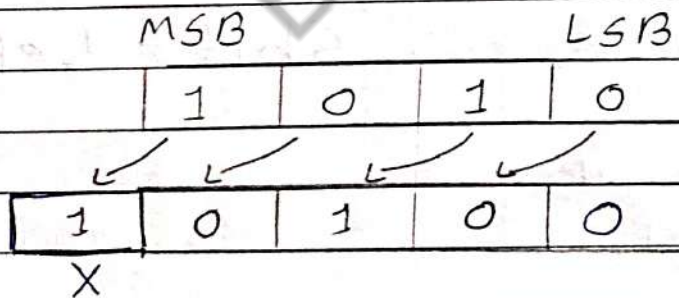 MSB LSB
1 0 1 0
1 0 1 0 0
X